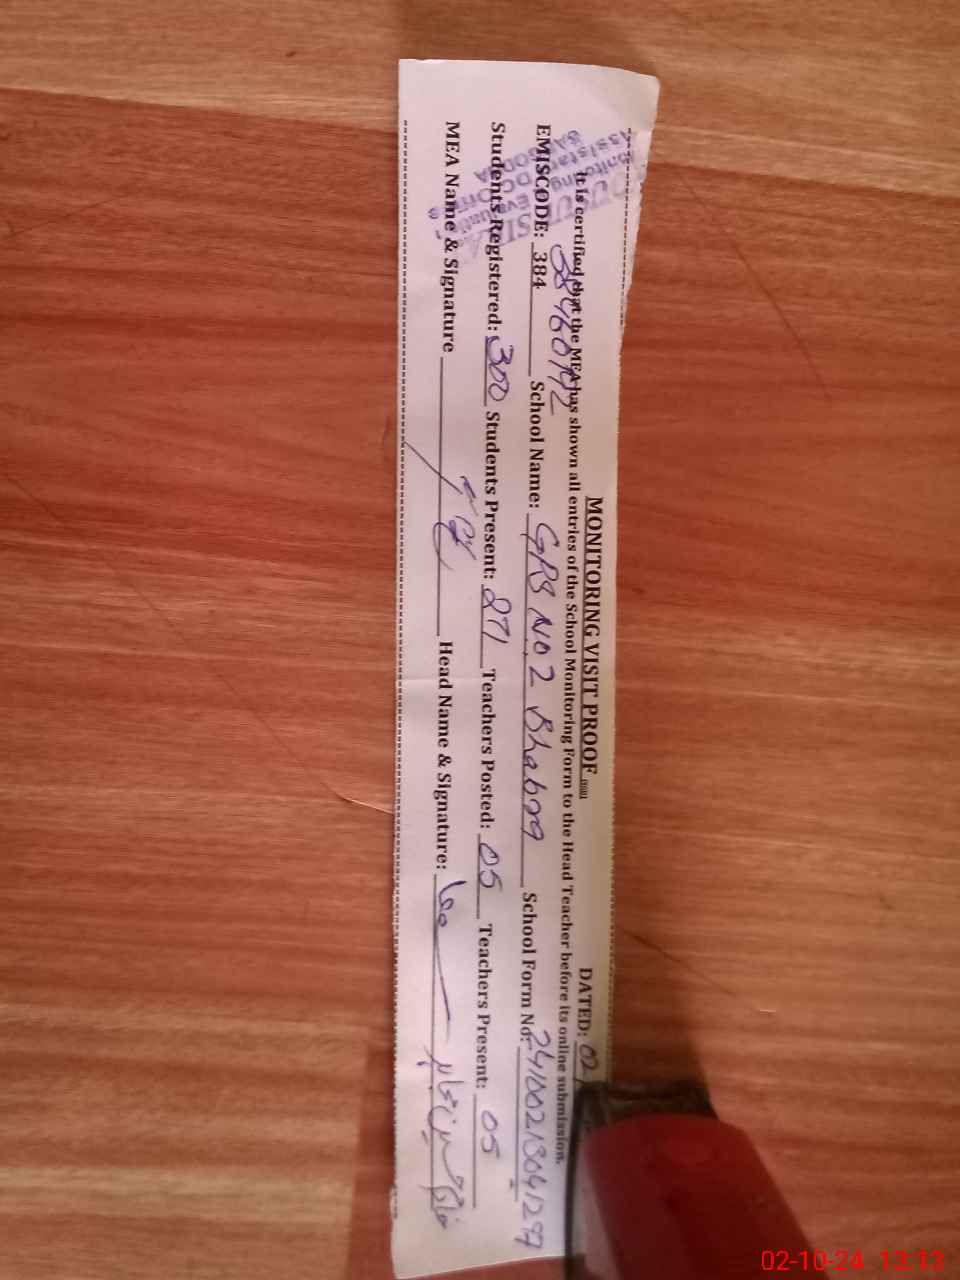 MONITORING VISIT PROOF
DATED: 02-
It is certified that the MEA has shown all entries of the School Monitoring Form to the Head Teacher before its online submission.
38460142
EMISCODE: 384 School Name: GPS NO 2 Bhabra School Form No: 24100213041297
Students Registered: 300 Students Present: 271 Teachers Posted: 05 Teachers Present: 05
MEA Name & Signature Head Name & Signature:
Monitoring
Assistant
02-10-24 13:13